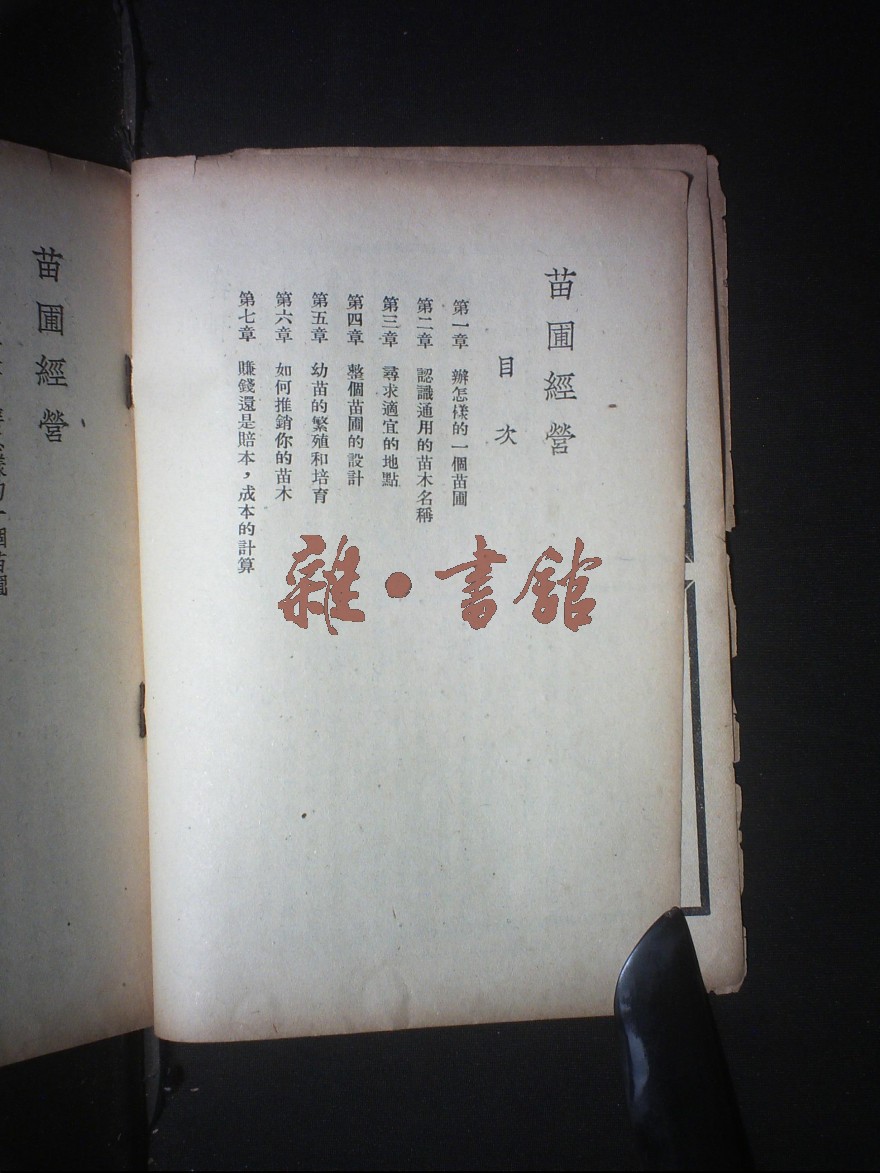 苗圃經營
目次
第一章　辦怎樣的一個苗圃
第二章　認識通用的苗木名稱
第三章　尋求適宜的地點
第四章　整個苗圃的設計
第五章　幼苗的繁殖和培育
第六章　如何推銷你的苗木
第七章　賺錢還是賠本，成本的計算
雜·書館
苗圃經營
樣的一個苗圃